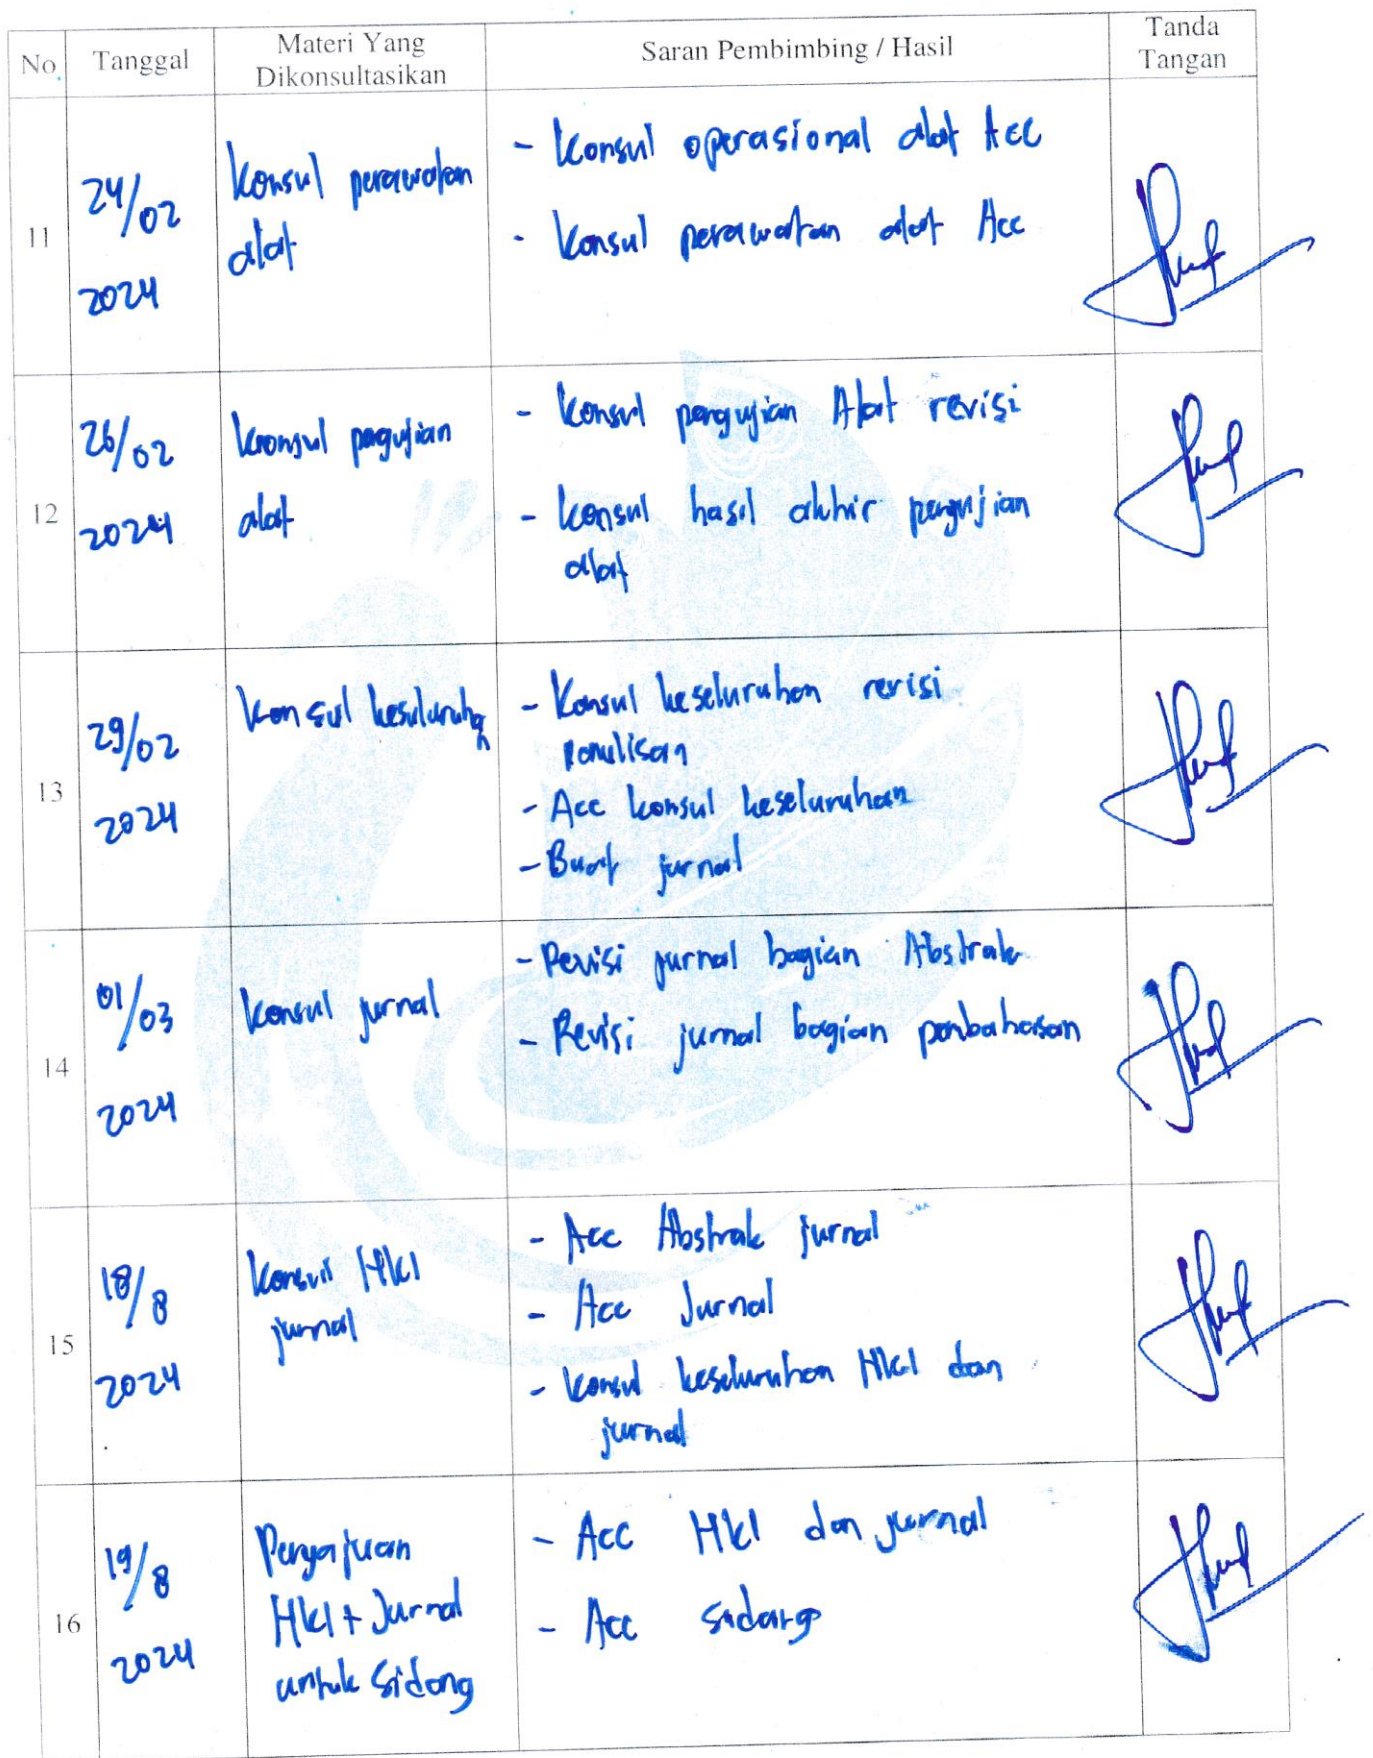 No
Tanggal
Materi Yang
Dikonsultasikan
Saran Pembimbing / Hasil
Tanda
Tangan
11
24/02
2024
Konsul perawatan
alat
- Konsul operasional alat Acc
- Konsul perawatan alat Acc
12
26/02
2024
Konsul pagujian
alat
- Konsul pengujian Alat revisi
- Konsul hasil akhir pengujian
alat
13
29/02
2024
Konsul kesuluruhan
- Konsul keseluruhan revisi
penulisan
- Acc konsul keseluruhan
- Buat jurnal
14
01/03
2024
Konsul jurnal
- Revisi jurnal bagian Abstrak
- Revisi jurnal bagian penbahasan
15
18/8
2024
Konsul HKI
jurnal
- Acc Abstrak jurnal
- Acc Jurnal
- Konsul keseluruhan HKI dan
jurnal
16
19/8
2024
Pengajuan
HKI + Jurnal
untuk Sidang
- Acc HKI dan jurnal
- Acc sidang